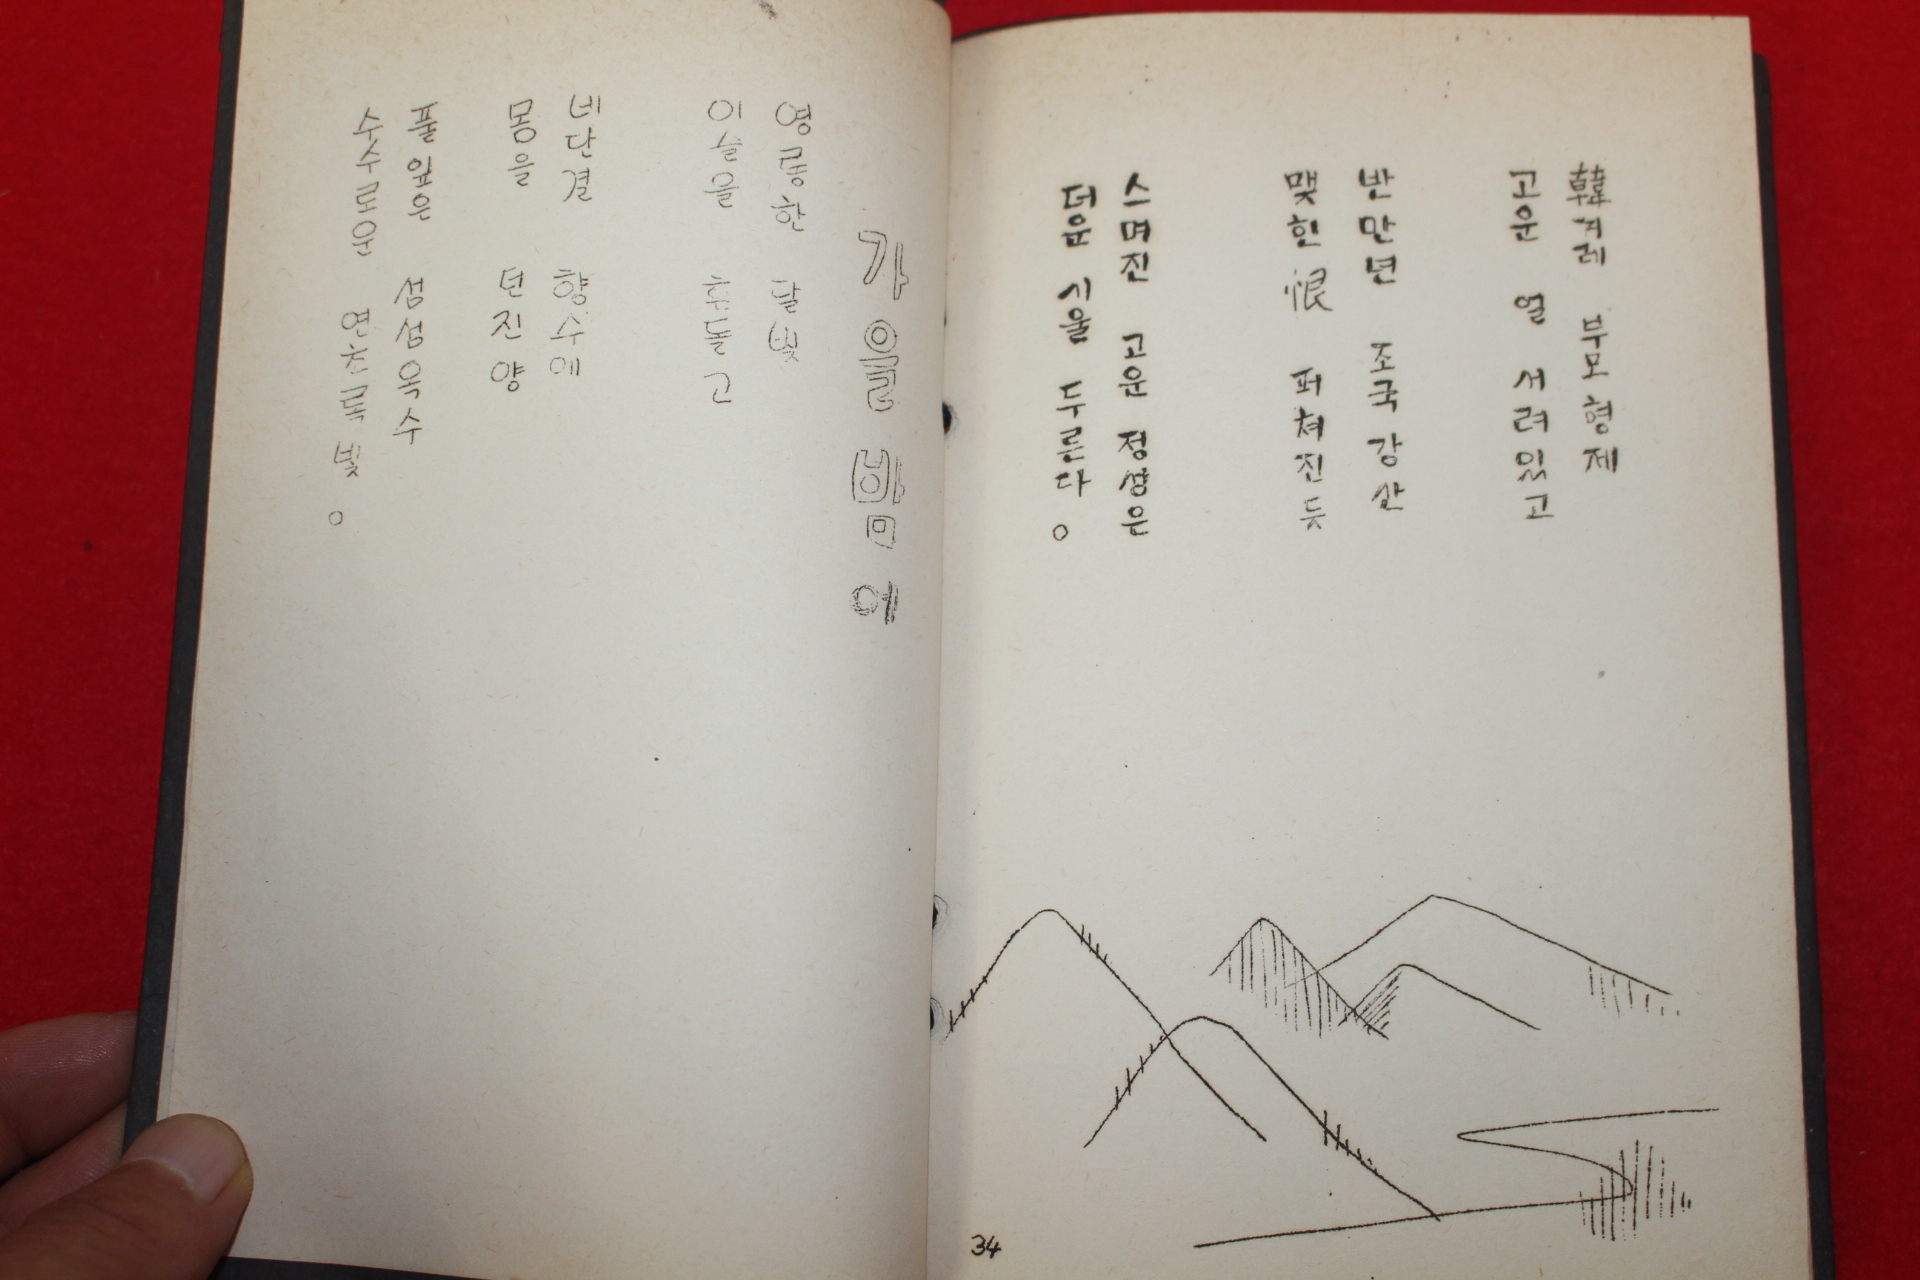 韓겨레 부모형제
고운 얼 서려있고
반만년 조국강산
맺힌 恨 퍼쳐진 듯
스며진 고운 정성은
더운 시울 두른다。
34
가을 밤에
영롱한 달빛
이슬을 휘돌고
비단결 향수에
몸을 던진 양
풀잎은 섬섬옥수
수수로운 연초록 빛。